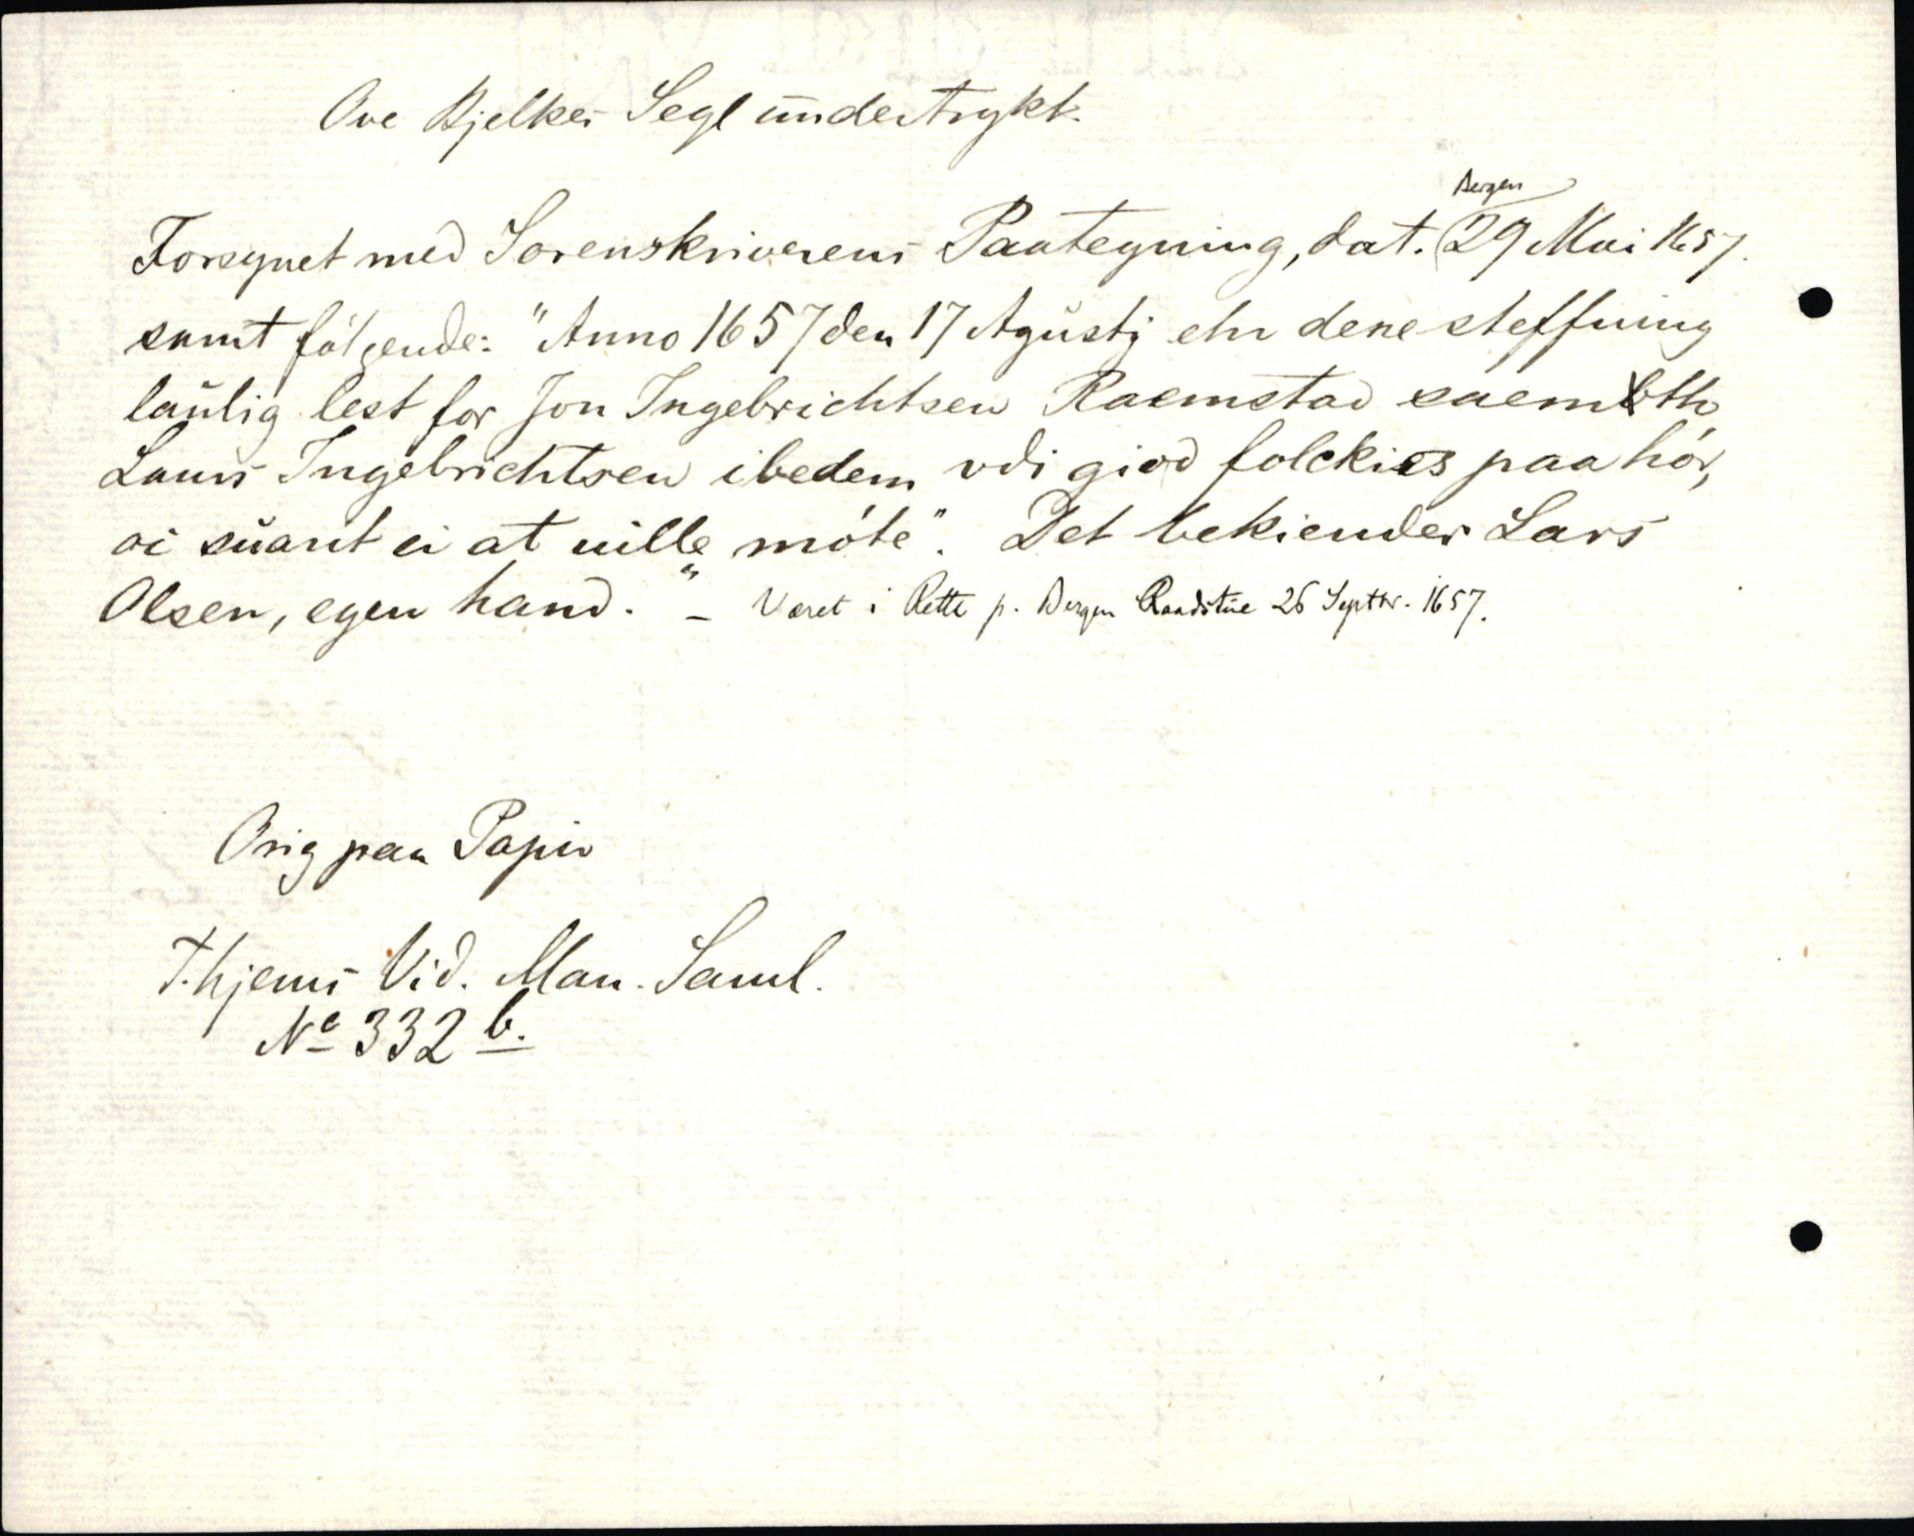 Ove Bjelkes Segl undertrykt.
Bergen
Forsynet med Sorenskriverens Paategning, dat. 29 Mai 1657.
samt følgende: "Anno 1657 den 17 Agustj ehr dene steffning
laulig lest for Jon Ingebrichtsen Raemstad saemptth
Lauris Ingebrichtsen ibedem vdi giod folckies paa hór,
oi suarit ei at uille móte". Det bekiender Lars
Olsen, egen hand." – Været i Rette p. Bergen Raadstue 26 Septbr. 1657.
Orig paa Papir
T.hjems Vid. Man. Saml.
No 332 b.